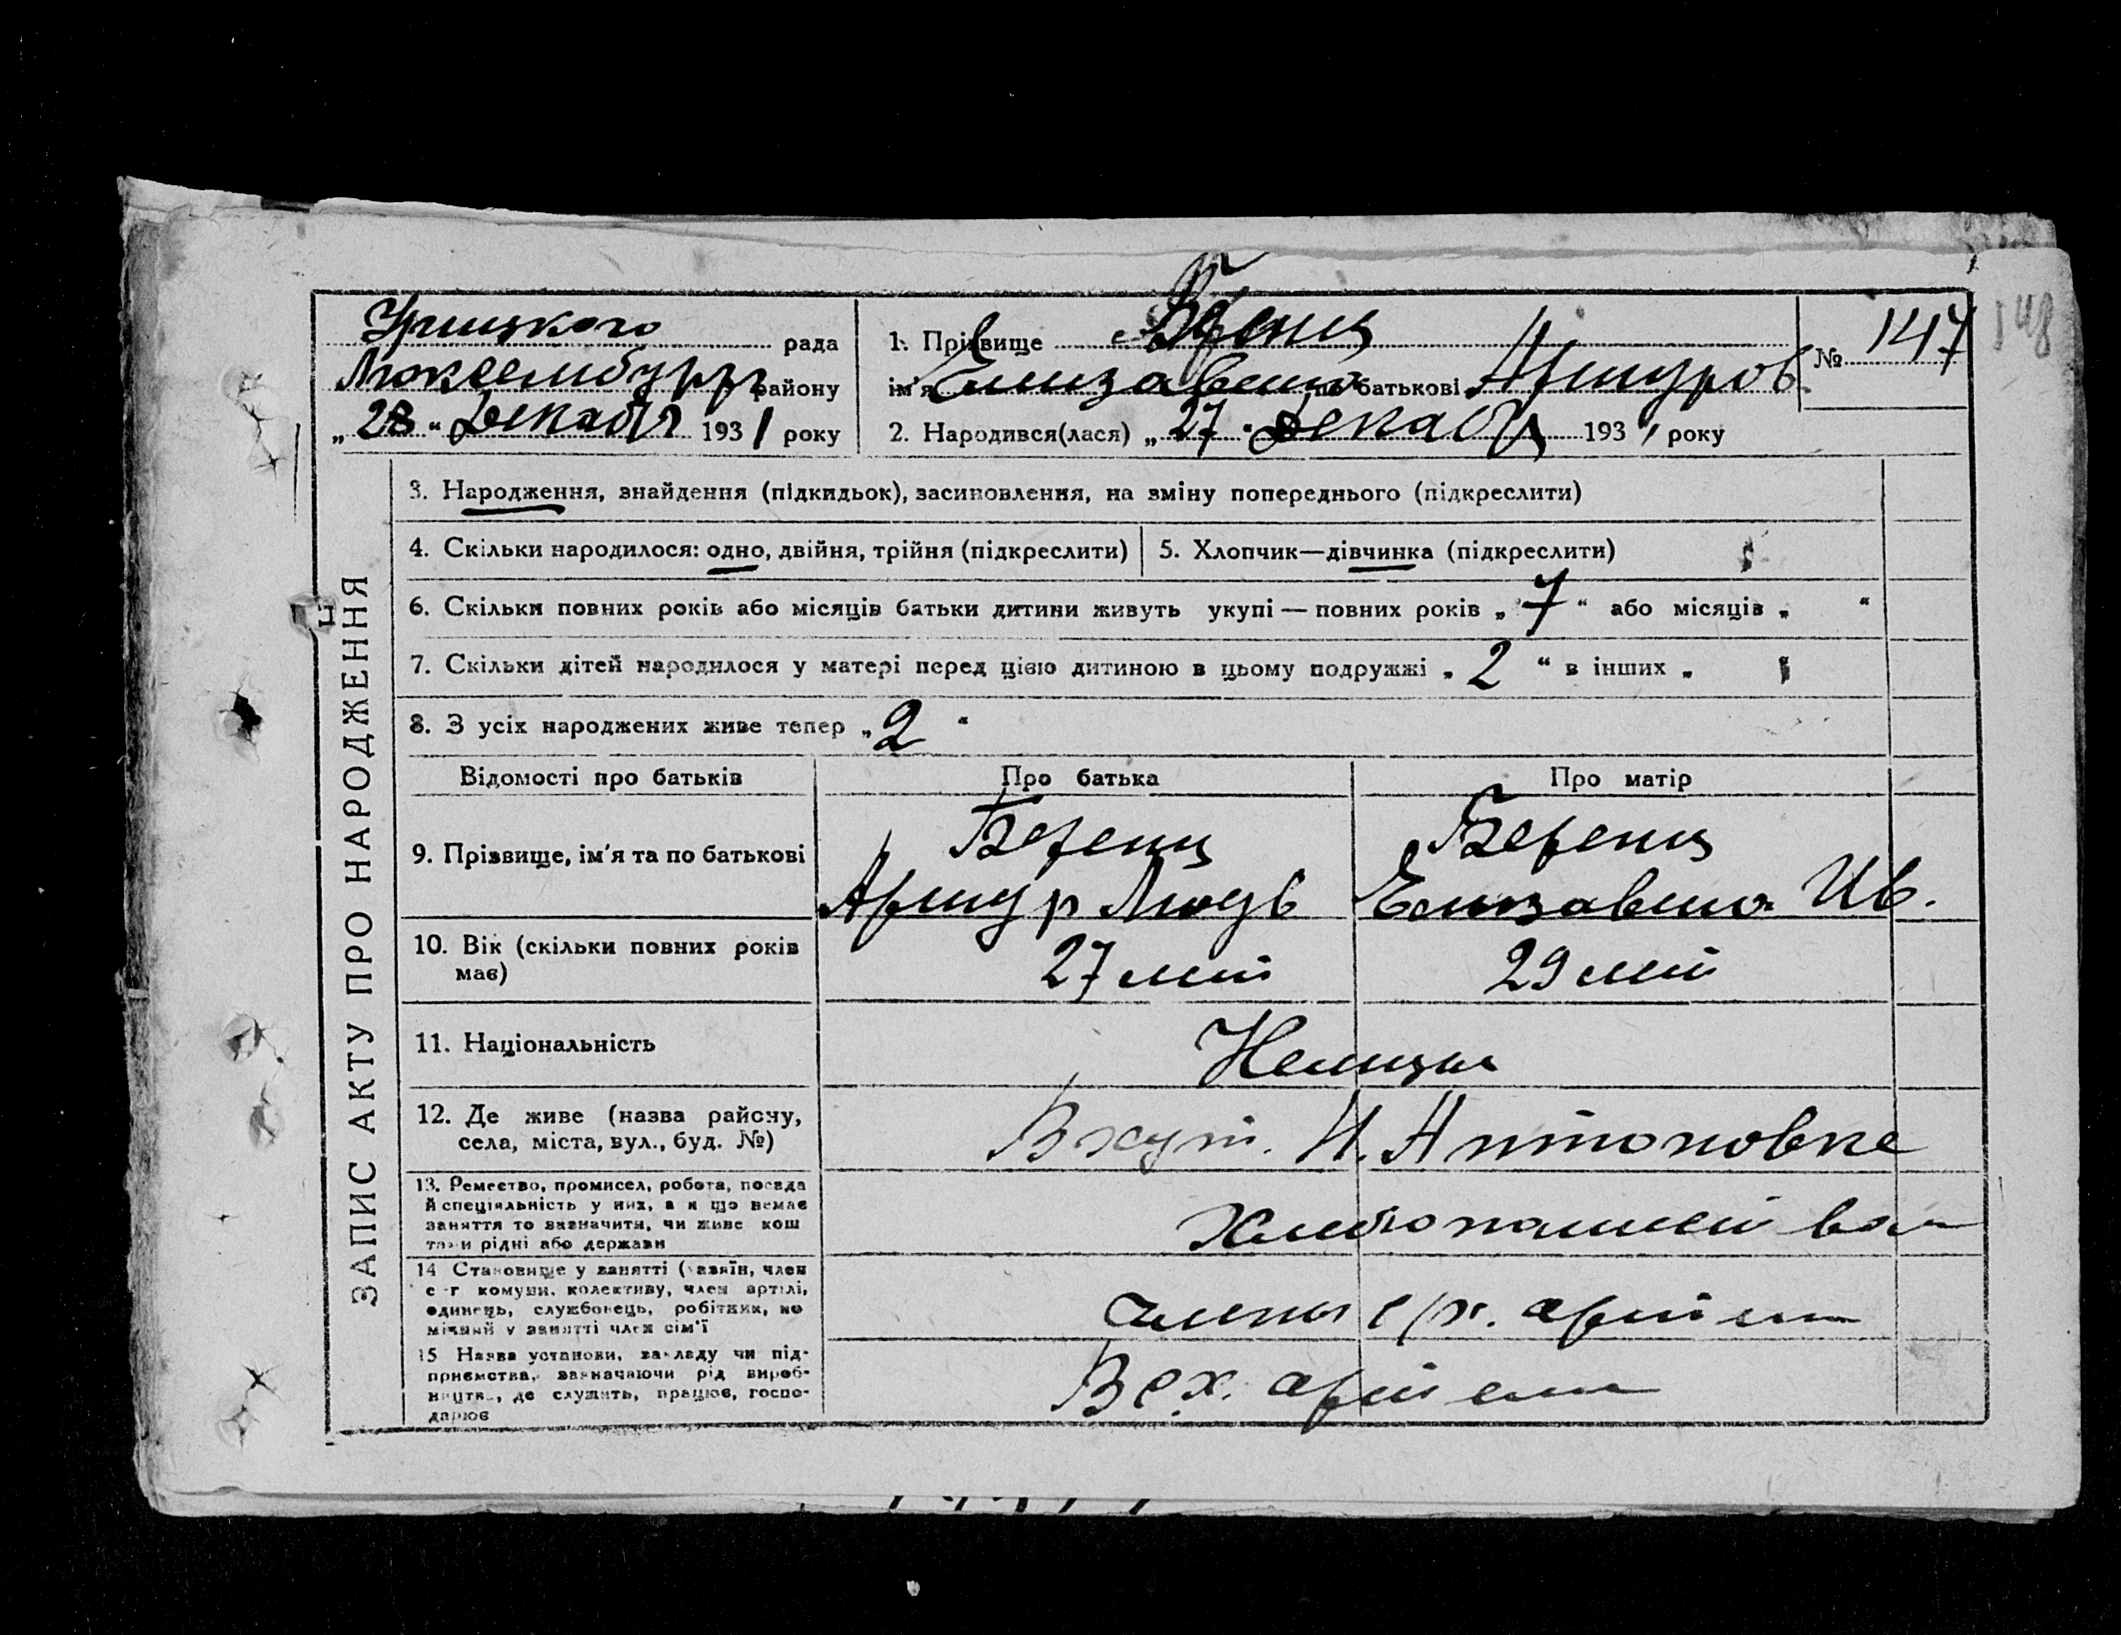 Урицкого рада
Люксембург району
„28“ Декабря 1931 року
1. Прізвище Беренц
ім'я Елизавета по батькові Артуров.
2. Народився(лася) „27“ Декабря 1931 року
№ 147
148
ЗАПИС АКТУ ПРО НАРОДЖЕННЯ
3. Народження, знайдення (підкидьок), засиновлення, на зміну попереднього (підкреслити)
4. Скільки народилося: одно, двійня, трійня (підкреслити)
5. Хлопчик—дівчинка (підкреслити)
6. Скільки повних років або місяців батьки дитини живуть укупі — повних років „7“ або місяців „ “
7. Скільки дітей народилося у матері перед цією дитиною в цьому подружжі „2“ в інших „
8. З усіх народжених живе тепер „2“
Відомості про батьків
Про батька
Про матір
9. Прізвище, ім'я та по батькові
Беренц
Артур
Беренц
Елизавета Ив.
10. Вік (скільки повних років
має)
27 лет
29 лет
11. Національність
Немцы
12. Де живе (назва району,
села, міста, вул., буд. №)
В хут. Н. Антоновке
13. Ремество, промисел, робота, посада
й спеціяльність у них, а я що немає
заняття то зазначити, чи живе кош
тами рідні або держави
Хлебопашества
14 Становище у занятті (хазяїн, член
с-г комуни, колективу, член артілі,
одинець, службовець, робітник, по
мічний у занятті член сім'ї
члены с/х. артели
15 Назва установи, закладу чи під-
приємства, зазначаючи рід вироб-
ництва, де служить, працює, госпо-
дарює
В с.х. артели